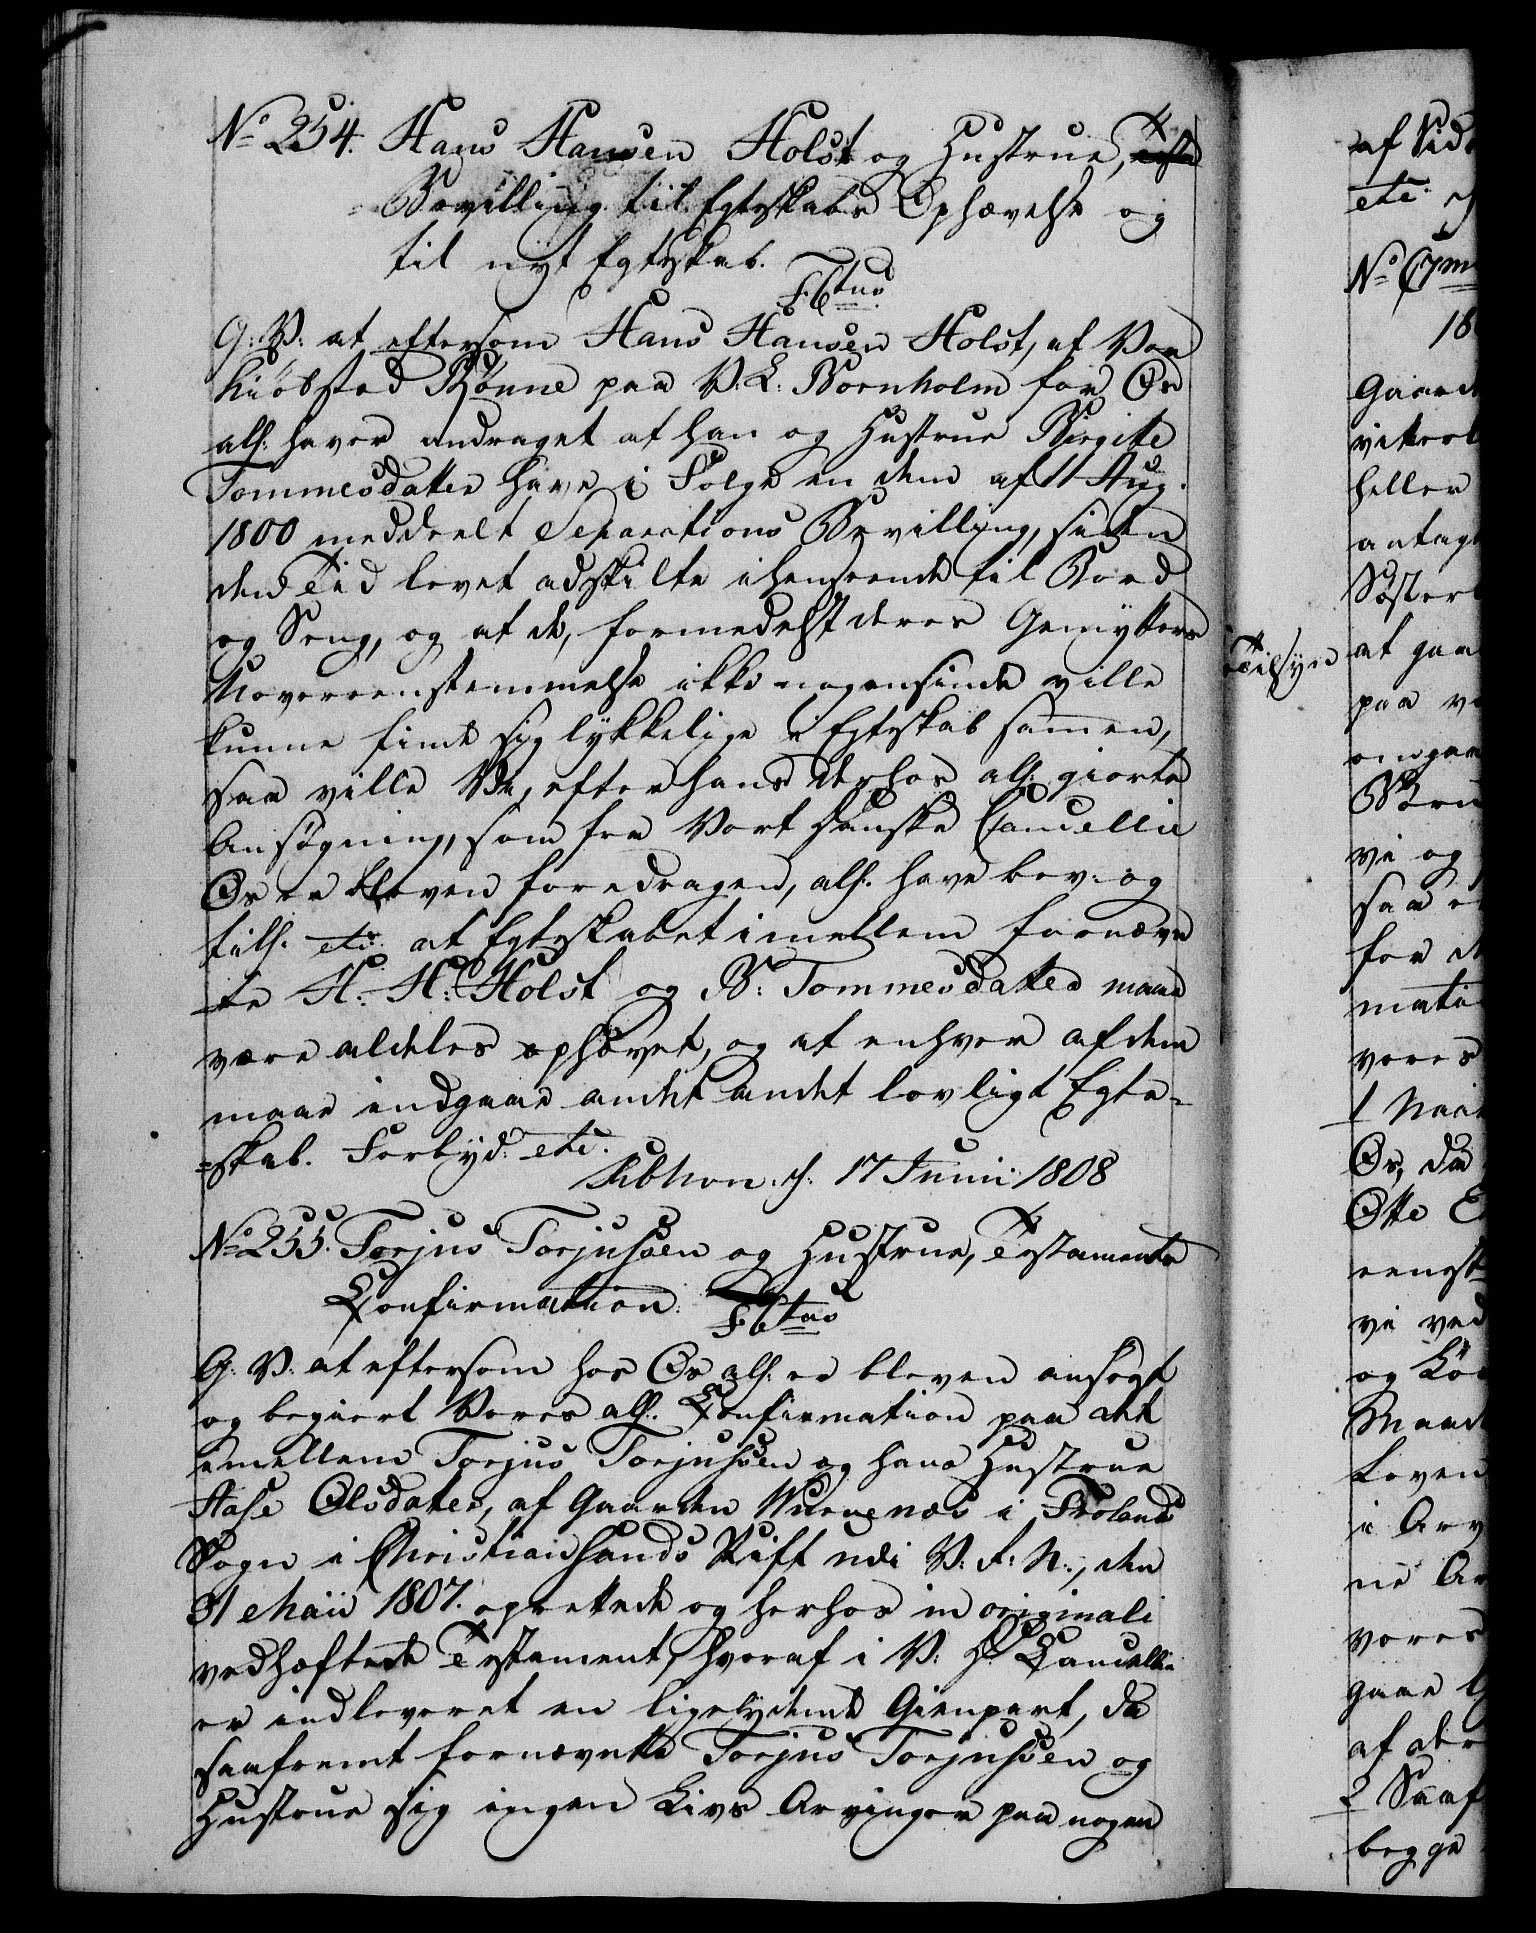 No 254. Hans Hansen Holst og Hustrue,
Bevilling til Egteskabs Ophævelse og
til nyt Egteskab.
F. 6tus
G: V: at eftersom Hans Hansen Holst, af Vor
Kiøbsted Rønne paa V. L. Bornholm for Os
alf: haver andraget at han og Hustrue Birgitte
Tommesdatter have i Følge en dem af 11 Aug.
1800 meddeelt Separations Bevilling, siden
den Tid levet adskilte i henseende til Bord
og Seng, og at de, formedelst deres Gemytters
Uovereenstemmelse ikke nogensinde ville
kunne finde sig lykkelige i Egteskab samen,
saa ville Vi, efter hans derhos alf: giorte
Ansøgning, som fra Vort danske Cancellie
Os er bleven foredragen, alf. have bev: og
till. etc. at Egteskabet imellem fornævn
te H. H: Holst og B: Tommesdatter maae
være aldeles ophævet, og at enhver af dem
maae indgaae andet andet lovligt Egte-
=skab. Forbyd: etc.
Kbhvn. d. 17 Junii 1808
No 255. Torjus Torjussen og Hustrue, Testaments
Confirmation.
F. 6tus
G. V. at eftersom hos Os alf: er bleven ansøgt
og begiert Vores alf. Confirmation paa det
emellem Torjus Torjussen og hans Hustrue
Aase Olsdatter, af Gaarden i Frolands
Sogn i Christiansands Stift udi V: R: N:, den
31 Maii 1807. oprettede og herhos in originali
vedhæftede Testament, hvoraf i V: D. Cancellie
er indleveret en ligelydende Gienpart, da
saafremt fornævnte Torjus Torjussen og
Hustrue sig ingen Livs Arvinger paa nogen
Tilsyn
af Sid
etc
No
18
Gaard
heller
antag
at gaa
paa
vi og
saa
for
vores
1
Os, da
Otte
vi ved
og
Loven
i Arv
ne Ar
vores
gaae
af
2 Saaf
begge